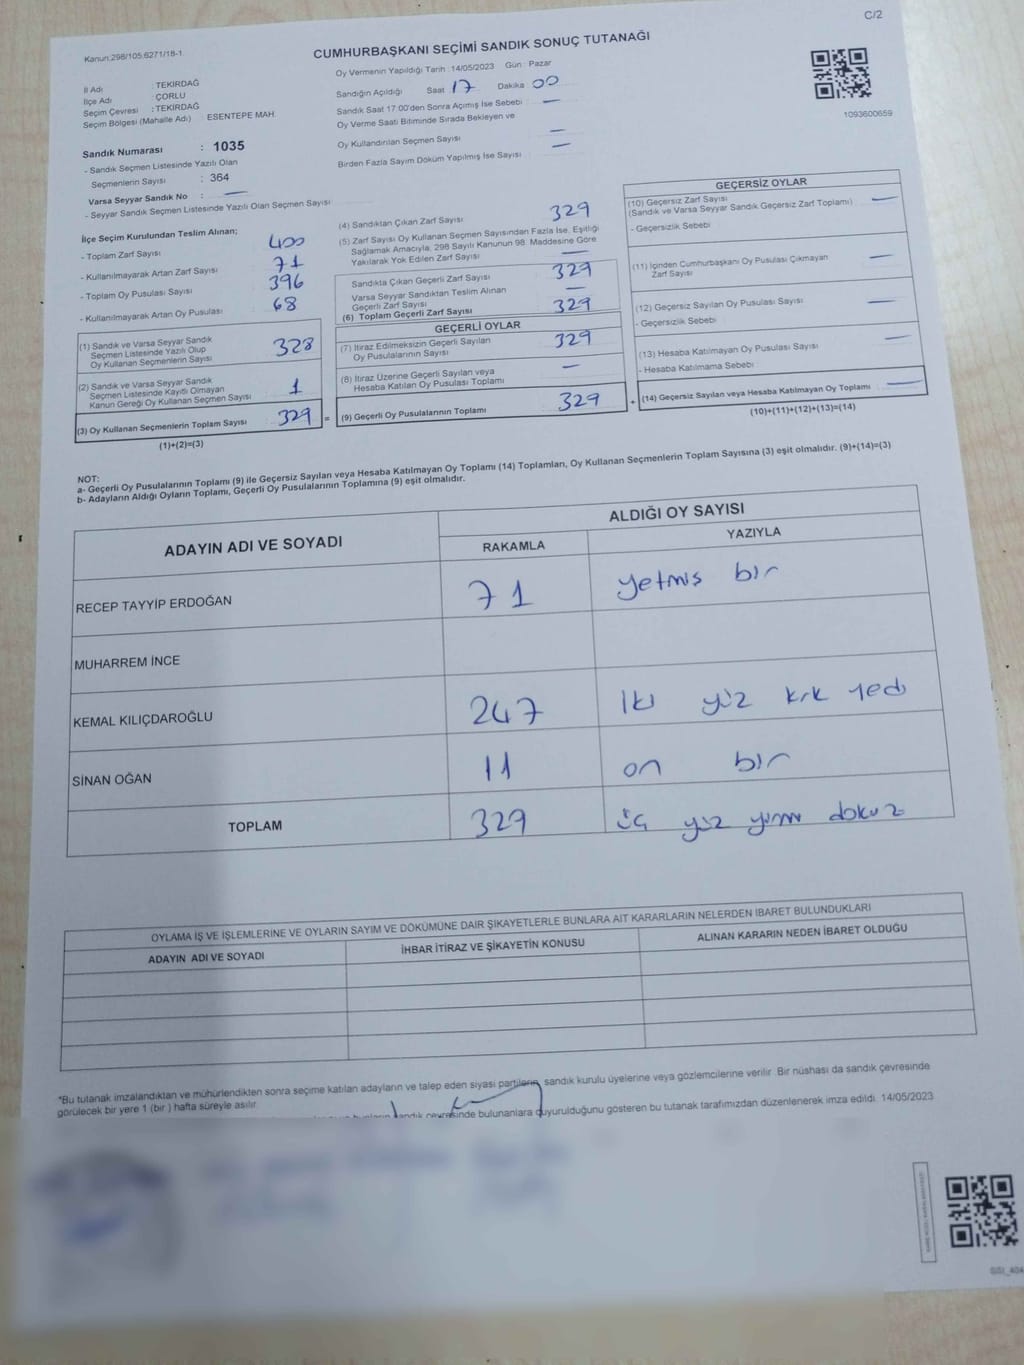 C/2
Kanun:298/105;6271/18-1
CUMHURBAŞKANI SEÇİMİ SANDIK SONUÇ TUTANAĞI
İl Adı : TEKİRDAĞ
İlçe Adı : ÇORLU
Seçim Çevresi : TEKİRDAĞ
Seçim Bölgesi (Mahalle Adı) : ESENTEPE MAH.
Oy Vermenin Yapıldığı Tarih :14/05/2023 Gün : Pazar
Sandığın Açıldığı Saat 17 Dakika 00
Sandık Saat 17:00'den Sonra Açılmış İse Sebebi —
Oy Verme Saati Bitiminde Sırada Bekleyen ve
Oy Kullandırılan Seçmen Sayısı —
Birden Fazla Sayım Döküm Yapılmış İse Sayısı —
1093600659
Sandık Numarası : 1035
- Sandık Seçmen Listesinde Yazılı Olan
Seçmenlerin Sayısı : 364
Varsa Seyyar Sandık No : —
- Seyyar Sandık Seçmen Listesinde Yazılı Olan Seçmen Sayısı
İlçe Seçim Kurulundan Teslim Alınan;
- Toplam Zarf Sayısı 400
- Kullanılmayarak Artan Zarf Sayısı 71
- Toplam Oy Pusulası Sayısı 396
- Kullanılmayarak Artan Oy Pusulası 68
(1) Sandık ve Varsa Seyyar Sandık
Seçmen Listesinde Yazılı Olup
Oy Kullanan Seçmenlerin Sayısı 328
(2) Sandık ve Varsa Seyyar Sandık
Seçmen Listesinde Kayıtlı Olmayan
Kanun Gereği Oy Kullanan Seçmen Sayısı 1
(3) Oy Kullanan Seçmenlerin Toplam Sayısı 329 =
(1)+(2)=(3)
(4) Sandıktan Çıkan Zarf Sayısı 329
(5) Zarf Sayısı Oy Kullanan Seçmen Sayısından Fazla İse, Eşitliği
Sağlamak Amacıyla, 298 Sayılı Kanunun 98. Maddesine Göre
Yakılarak Yok Edilen Zarf Sayısı —
Sandıkta Çıkan Geçerli Zarf Sayısı 329
Varsa Seyyar Sandıktan Teslim Alınan
Geçerli Zarf Sayısı —
(6) Toplam Geçerli Zarf Sayısı 329
GEÇERLİ OYLAR
(7) İtiraz Edilmeksizin Geçerli Sayılan
Oy Pusulalarının Sayısı 329
(8) İtiraz Üzerine Geçerli Sayılan veya
Hesaba Katılan Oy Pusulası Toplamı —
(9) Geçerli Oy Pusulalarının Toplamı 329 +
GEÇERSİZ OYLAR
(10) Geçersiz Zarf Sayısı —
(Sandık ve Varsa Seyyar Sandık Geçersiz Zarf Toplamı)
- Geçersizlik Sebebi
(11) İçinden Cumhurbaşkanı Oy Pusulası Çıkmayan
Zarf Sayısı —
(12) Geçersiz Sayılan Oy Pusulası Sayısı —
- Geçersizlik Sebebi
(13) Hesaba Katılmayan Oy Pusulası Sayısı —
- Hesaba Katılmama Sebebi
(14) Geçersiz Sayılan veya Hesaba Katılmayan Oy Toplamı —
(10)+(11)+(12)+(13)=(14)
NOT:
a- Geçerli Oy Pusulalarının Toplamı (9) ile Geçersiz Sayılan veya Hesaba Katılmayan Oy Toplamı (14) Toplamları, Oy Kullanan Seçmenlerin Toplam Sayısına (3) eşit olmalıdır. (9)+(14)=(3)
b- Adayların Aldığı Oyların Toplamı, Geçerli Oy Pusulalarının Toplamına (9) eşit olmalıdır.
ADAYIN ADI VE SOYADI
ALDIĞI OY SAYISI
RAKAMLA YAZIYLA
RECEP TAYYİP ERDOĞAN 71 yetmiş bir
MUHARREM İNCE
KEMAL KILIÇDAROĞLU 247 iki yüz kırk yedi
SİNAN OĞAN 11 on bir
TOPLAM 329 üç yüz yirmi dokuz
OYLAMA İŞ VE İŞLEMLERİNE VE OYLARIN SAYIM VE DÖKÜMÜNE DAİR ŞİKAYETLERLE BUNLARA AİT KARARLARIN NELERDEN İBARET BULUNDUKLARI
ADAYIN ADI VE SOYADI İHBAR İTİRAZ VE ŞİKAYETİN KONUSU ALINAN KARARIN NEDEN İBARET OLDUĞU
*Bu tutanak imzalandıktan ve mühürlendikten sonra seçime katılan adayların ve talep eden siyasi partilerin, sandık kurulu üyelerine veya gözlemcilerine verilir. Bir nüshası da sandık çevresinde
görülecek bir yere 1 (bir ) hafta süreyle asılır.
sandık çevresinde bulunanlara duyurulduğunu gösteren bu tutanak tarafımızdan düzenlenerek imza edildi. 14/05/2023